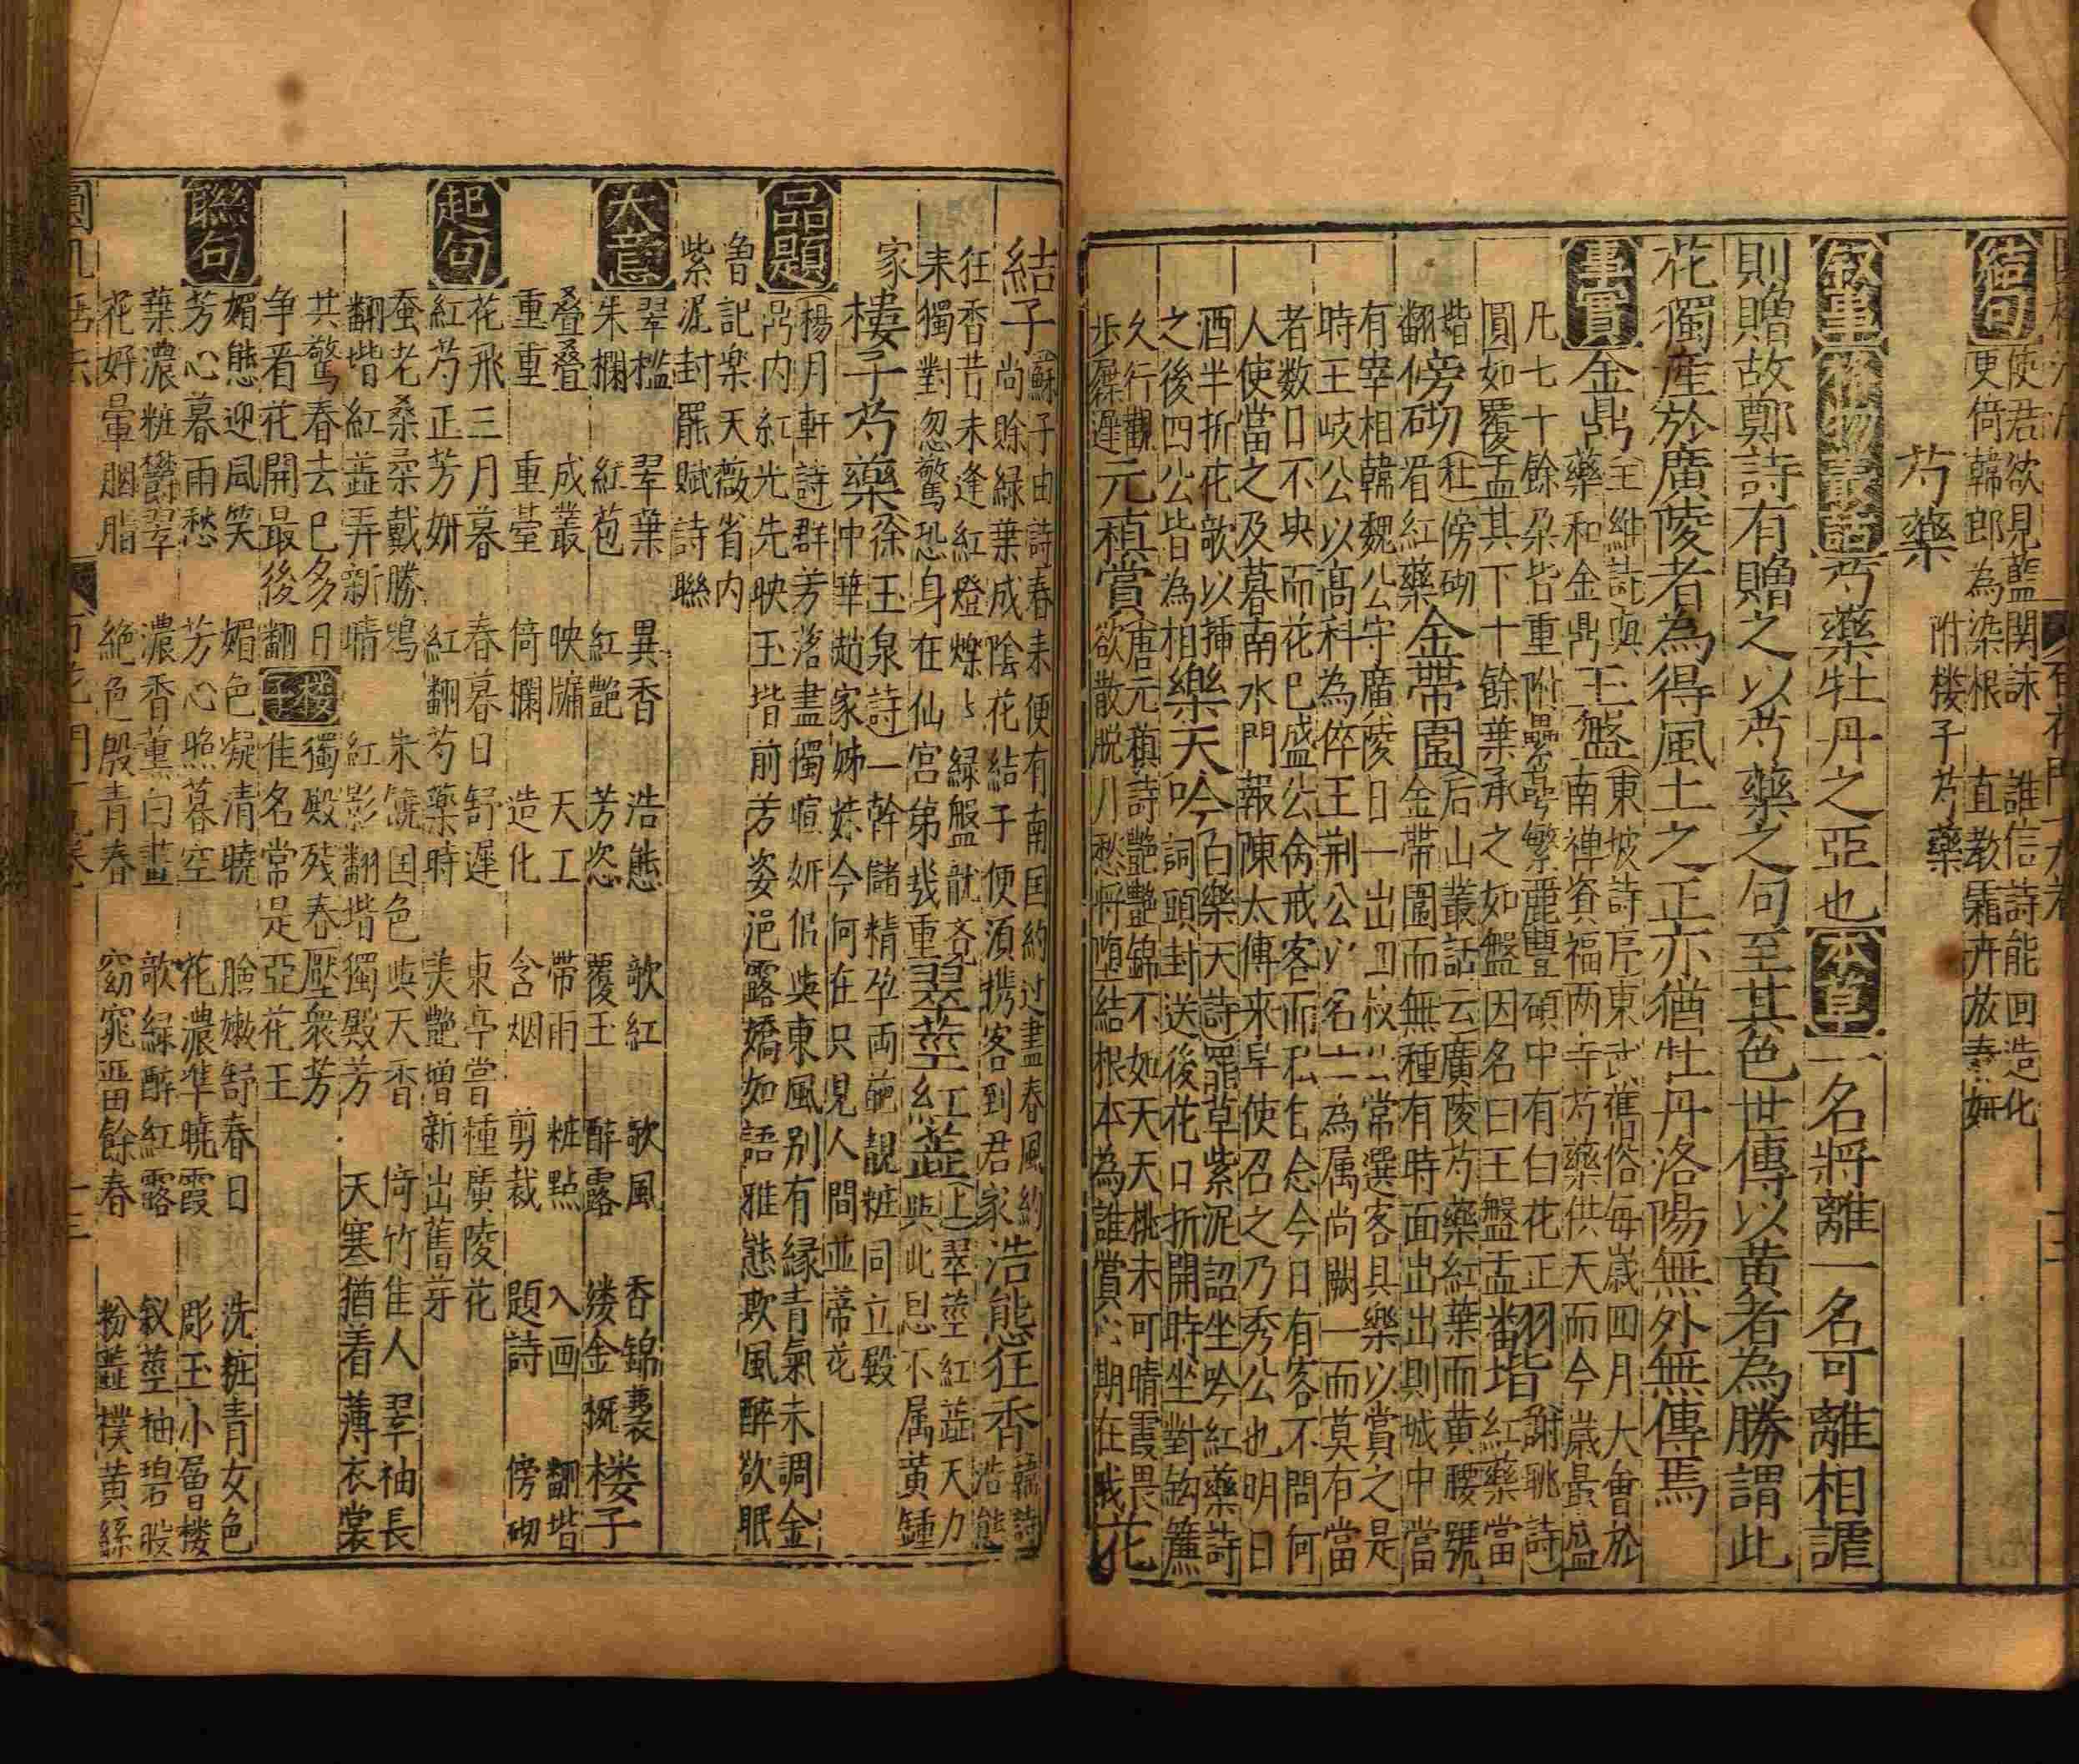 絶句
使君欲見藍関詠
更倚韓郎為染根
誰信詩能回造化
直教霜卉放春妍
芍藥
附楼子芍藥
叙事
芍藥牡丹之亞也
本草
一名將離一名可離相謔
則贈故鄭詩有贈之以芍藥之句至其色世傳以黄者為勝謂此
花獨産於廣陵者為得風土之正亦猶牡丹洛陽無外無傳焉
事實
金鼎
王維詩
藥和金鼎
玉盤
東坡詩序東武舊俗每歲四月大會於
南禪資福两寺芍藥供天而今歲最盛
凡七十餘朶皆重附纍萼繁麗豐碩中有白花正
圓如覆盂其下十餘葉承之如盤因名曰玉盤盂
翻堦
謝眺詩
紅藥當
堦翻
傍砌
杜傍砌
看紅藥
金帶圍
后山叢話云廣陵芍藥紅葉而黄腰號
金帶圍而無種有時而出出則城中當
有宰相韓魏公守廣陵日一出四枝公常選客具樂以賞之是
時王岐公以高科為倅王荆公以名士為属尚闕一而莫有當
者数日不决而花已盛公命戒客而私自念今日有客不問何
人使當之及暮南水門報陳太傅来早使召之乃秀公也明日
酒半折花歌以揷
之後四公皆為相
樂天吟
白樂天詩罷草紫泥詔坐吟紅藥詩
詞頭封送後花口折開時坐對鈎簾
久行觀
步屧遲
元稹賞
唐元稹詩艷艷錦不如夭夭桃未可晴霞畏
欲散脱月愁將堕結根本為誰賞心期在我
花
結子
蘇子由詩春来便有南国約过盡春風約
尚賖緑葉成陰花結子便須携客到君家
浩態狂香
韓詩
浩態
狂香昔未逢紅燈爍〻緑盤龍
来獨對忽驚恐身在仙宮第幾重
翠莖紅蘂
上翠莖紅蘂天力
與此恩不属黄鍾
家
樓子芍藥
徐玉泉詩一幹儲精孕両葩靚粧同立殿
中華趙家姊妹今何在只見人間並蒂花
品題
楊月軒詩群芳落盡獨暄妍侶與東風别有縁青氣未調金
鼎内紅光先映玉堦前芳姿浥露嬌如語雅態欺風醉欲眠
魯記楽天薇省内
紫泥封罷賦詩聯
大意
翠檻 翠葉 異香 浩態 歌紅 歌風 香錦裹
朱欄 紅苞 紅艷 芳恣 覆玉 醉露 縷金
楼子
叠叠 成叢 映牖 天工 帶雨 粧點 入画 翻堦
重重 重臺 倚欄 造化 含烟 剪裁 題詩 傍砌
起句
花飛三月暮 春暮日舒遲 東亭嘗種廣陵花
紅芍正芳妍 紅翻芍藥時 美艷増新出舊芽
蚕老桑柔戴勝鳴 朱饒国色與天香 倚竹隹人翠袖長
翻堦紅蘂弄新晴 紅影翻堦獨殿芳 天寒猶着薄衣裳
共驚春去已多日 獨殿残春壓衆芳
争看花開最後翻
楼子
隹名常是亞花王
聯句
媚態迎風笑 媚色凝清曉 臉嫩舒春日 洗粧青女色
芳心暮雨愁 芳心照暮空 花濃準曉霞 彫玉小層楼
葉濃粧欝翠 濃香薰白晝 歌緑醉紅露 釵莖抽碧股
花好暈胭脂 絶色殿青春 窈窕留餘春 粉蘂撲黄絲